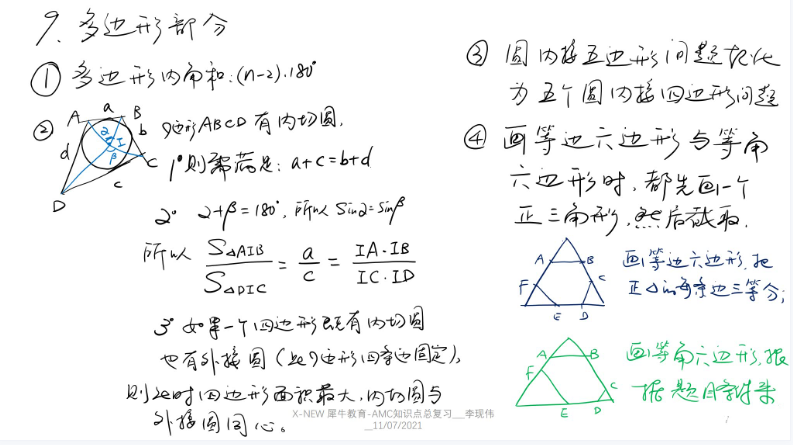 9、多边形部分
① 多边形内角和:(n-2)·180°
② 四边形ABCD有内切圆,
A a B
b
C
c
D
d
α I
β
1° 则需满足: a+c=b+d
2° α+β=180°, 所以 Sinα=Sinβ
所以 S△AIB / S△DIC = a / c = IA·IB / IC·ID
3° 如果一个四边形既有内切圆
也有外接圆(此四边形四条边固定),
则此时四边形面积最大,内切圆与
外接圆同心。
③ 圆内接五边形问题转化
为五个圆内接四边形问题
④ 画等边六边形与等角
六边形时,都先画一个
正三角形,然后截取.
A B C D E F
画等边六边形,把
正△的每条边三等分;
A B C D E F
画等角六边形,根
据题目条件来
X-NEW 犀牛教育-AMC知识点总复习__李现伟
__11/07/2021